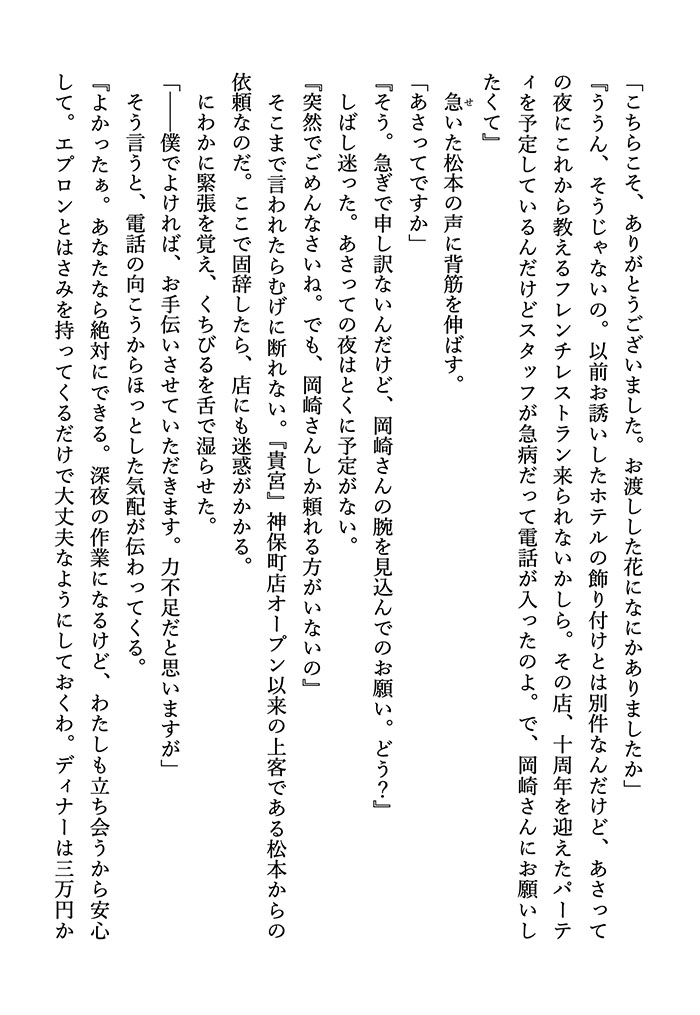 「こちらこそ、ありがとうございました。お渡しした花になにかありましたか」
『ううん、そうじゃないの。以前お誘いしたホテルの飾り付けとは別件なんだけど、あさって
の夜にこれから教えるフレンチレストラン来られないかしら。その店、十周年を迎えたパーテ
ィを予定しているんだけどスタッフが急病だって電話が入ったのよ。で、岡崎さんにお願いし
たくて』
急いた松本の声に背筋を伸ばす。
せ
「あさってですか」
『そう。急ぎで申し訳ないんだけど、岡崎さんの腕を見込んでのお願い。どう？』
しばし迷った。あさっての夜はとくに予定がない。
『突然でごめんなさいね。でも、岡崎さんしか頼れる方がいないの』
そこまで言われたらむげに断れない。『貴宮』神保町店オープン以来の上客である松本からの
依頼なのだ。ここで固辞したら、店にも迷惑がかかる。
にわかに緊張を覚え、くちびるを舌で湿らせた。
「――僕でよければ、お手伝いさせていただきます。力不足だと思いますが」
そう言うと、電話の向こうからほっとした気配が伝わってくる。
『よかったぁ。あなたなら絶対にできる。深夜の作業になるけど、わたしも立ち会うから安心
して。エプロンとはさみを持ってくるだけで大丈夫なようにしておくわ。ディナーは三万円か